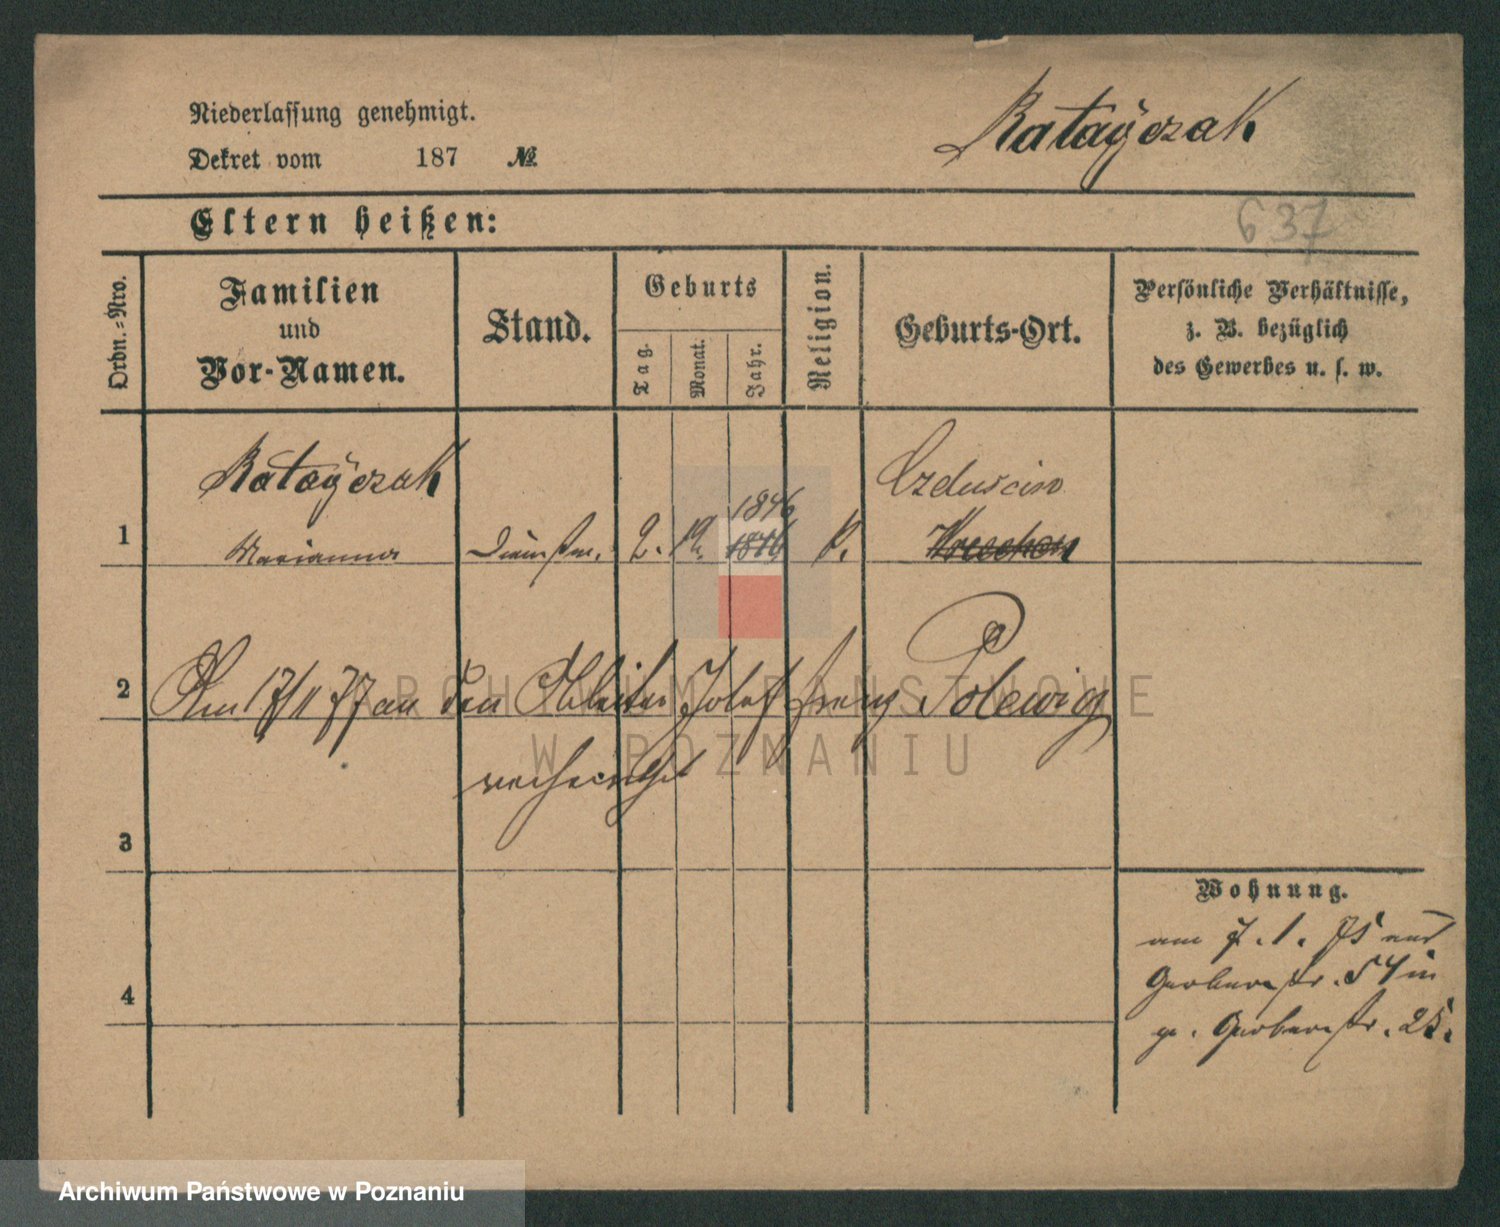 Niederlassung genehmigt.
Dekret vom 187 №
Ratayczak
637
Eltern heißen:
Ordn.-Nro.
Familien
und
Vor-Namen.
Stand.
Geburts
Tag.
Monat.
Jahr.
Religion.
Geburts-Ort.
Persönliche Verhältnisse,
z. B. bezüglich
des Gewerbes u. s. w.
1
Ratayczak
Marianna
2.
1846
Wreschen
2
Am 17/11 77 an den Arbeiter Josef Polewig
verheirathet
3
4
Wohnung.
am 7. 1. 75 aus
Gerberstr. 54 in
Gerberstr. 25.
ARCHIWUM PAŃSTWOWE
W POZNANIU
Archiwum Państwowe w Poznaniu